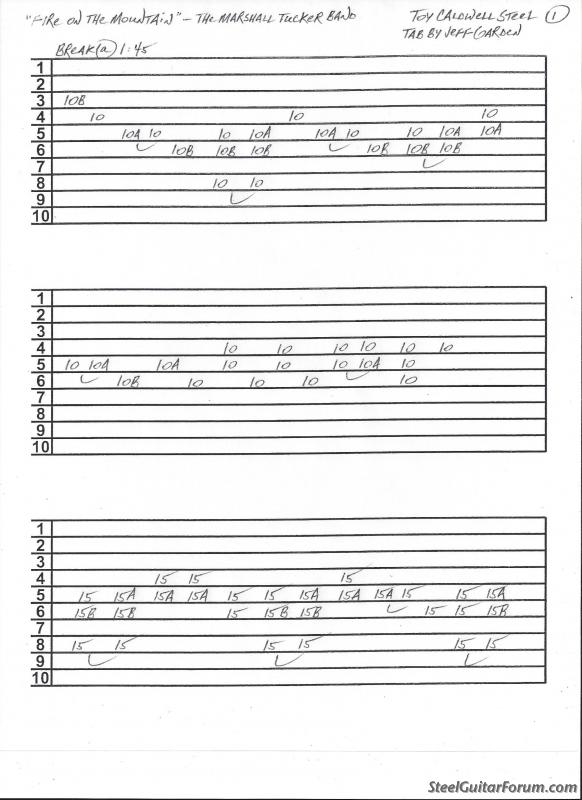 "FIRE ON THE MOUNTAIN" – THE MARSHALL TUCKER BAND
TOY CALDWELL STEEL 1
TAB BY JEFF GARDEN
BREAK @ 1:45
1
2
3 10B
4 10 10 10
5 10A 10 10 10A 10A 10 10 10A 10A
6 10B 10B 10B 10B 10B 10B
7
8 10 10
9
10
1
2
3
4 10 10 10 10 10 10
5 10 10A 10A 10 10 10 10A 10
6 10B 10 10 10 10
7
8
9
10
1
2
3
4 15 15 15
5 15 15A 15A 15A 15 15 15A 15A 15A 15 15 15A
6 15B 15B 15 15B 15B 15 15 15B
7
8 15 15 15 15 15 15
9
10
SteelGuitarForum.com